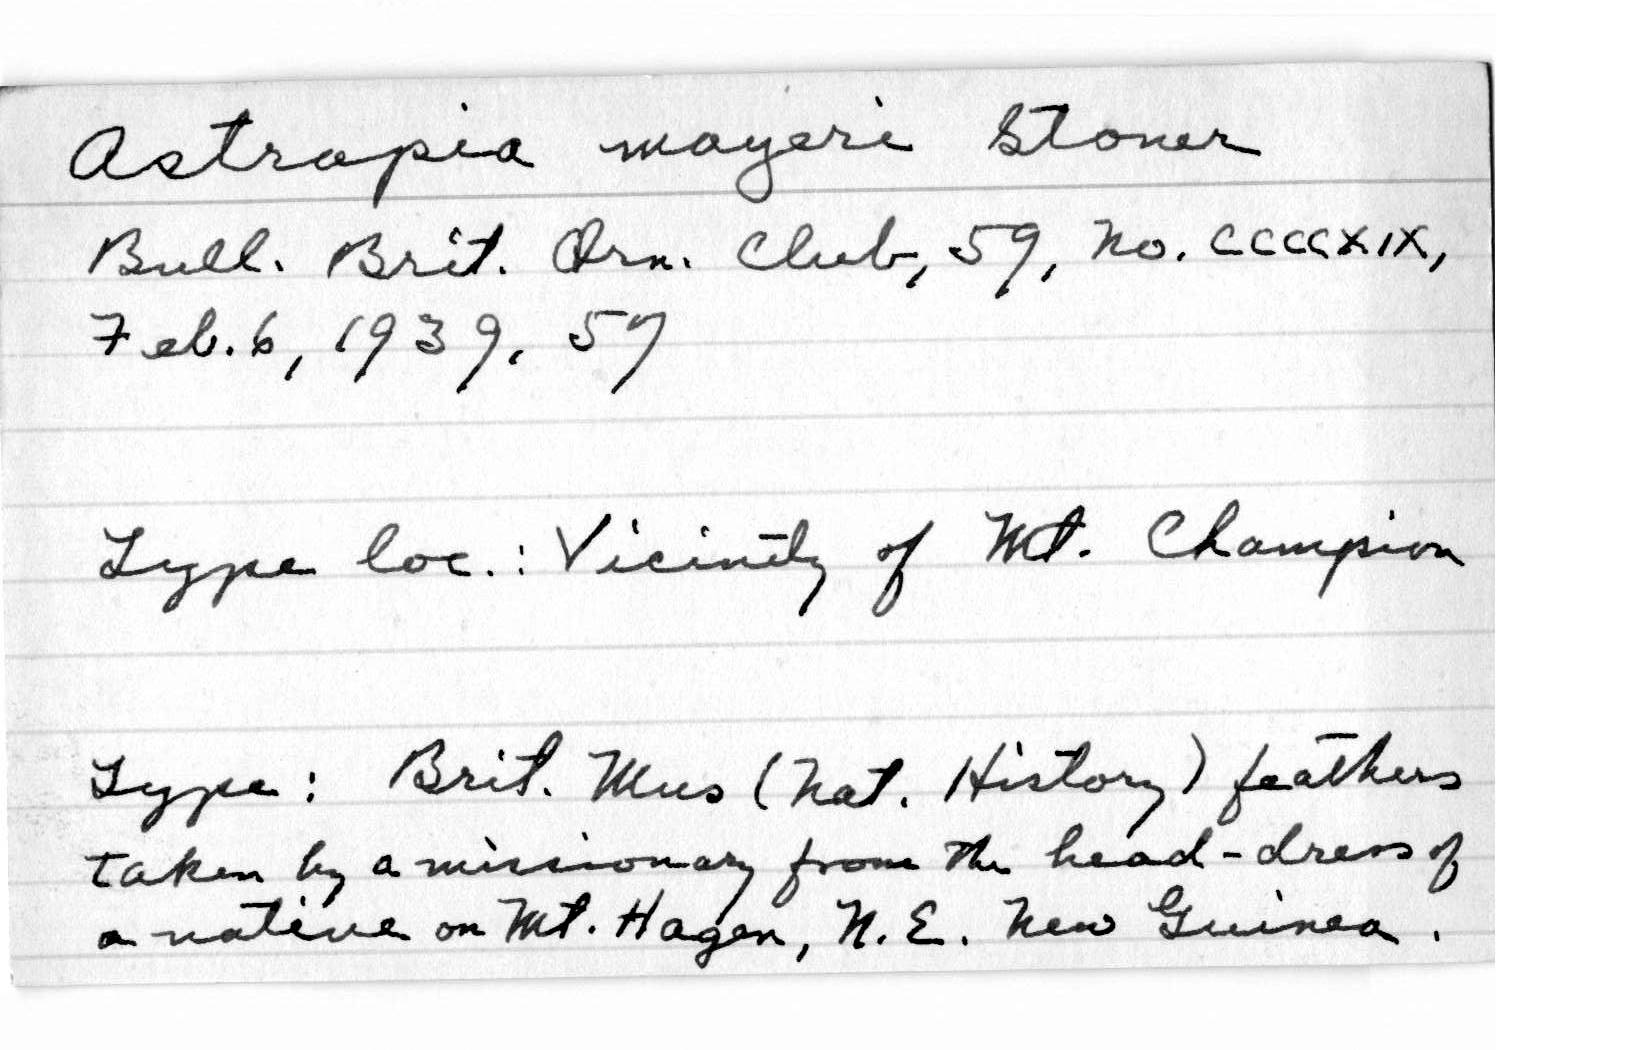 Astrapia mayeri Stoner
Bull. Brit. Orn. Club, 59, No. CCCCXIX,
Feb. 6, 1939, 57
Type loc.: Vicinity of Mt. Champion
Type: Brit. Mus (Nat. History) feathers
taken by a missionary from the head-dress of
a native on Mt. Hagen, N.E. New Guinea.